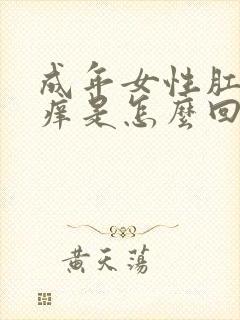 成年女性肛
痒是怎麼回
黄天荡